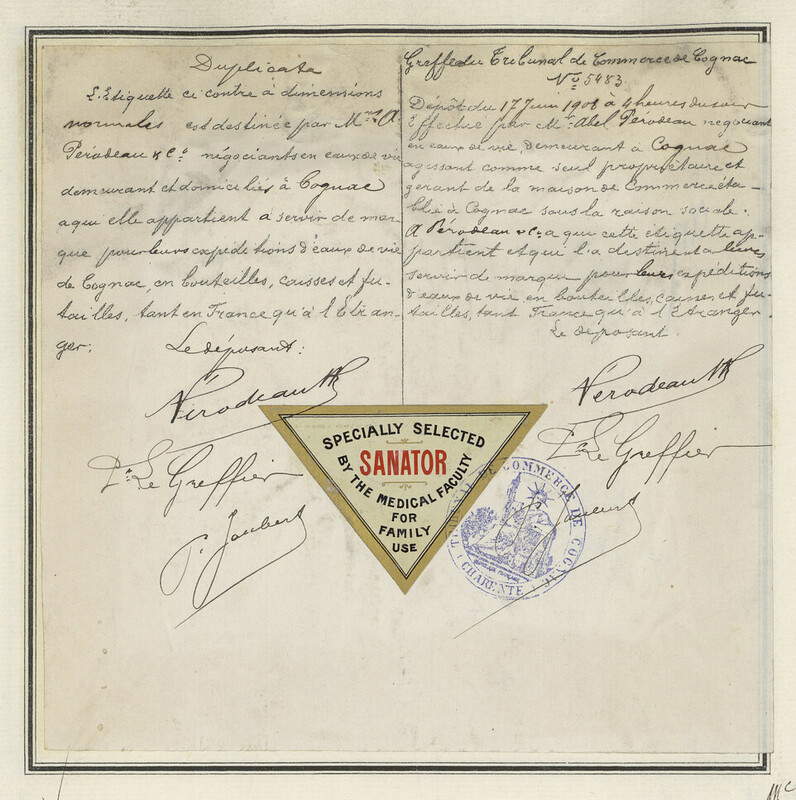 Duplicata
L'Etiquette ci contre à dimensions
normales est destinée par Mrs A.
Pérodeau & Co négociants en eaux de vie
demeurant et domiciliés à Cognac
a qui elle appartient à servir de mar-
que pour leurs expéditions d'eaux de vie
de Cognac, en bouteilles, caisses et fu-
tailles, tant en France qu'à l'Etran-
ger;
Le déposant:
Pérodeau
Pr Le Greffier
P. Joubert
Greffe du Tribunal de Commerce de Cognac
No 5483.
Dépôt du 17 Juin 1908 à 4 heures du soir
Effectué par Mr Abel Pérodeau négociant
en eaux de vie, demeurant à Cognac
agissant comme seul propriétaire et
gérant de la maison de Commerce éta-
blie à Cognac sous la raison sociale:
A Pérodeau & Co a qui cette étiquette ap-
partient et qui l'a destinée à
servir de marque pour leurs expéditions
d'eaux de vie en bouteilles, caisses, et fu-
tailles, tant France qu'à l'Etranger.
Le déposant.
Pérodeau
Pr Le Greffier
Joubert
SPECIALLY SELECTED
SANATOR
BY THE MEDICAL FACULTY
FOR
FAMILY
USE
TRIBUNAL DE COMMERCE DE COGNAC
CHARENTE